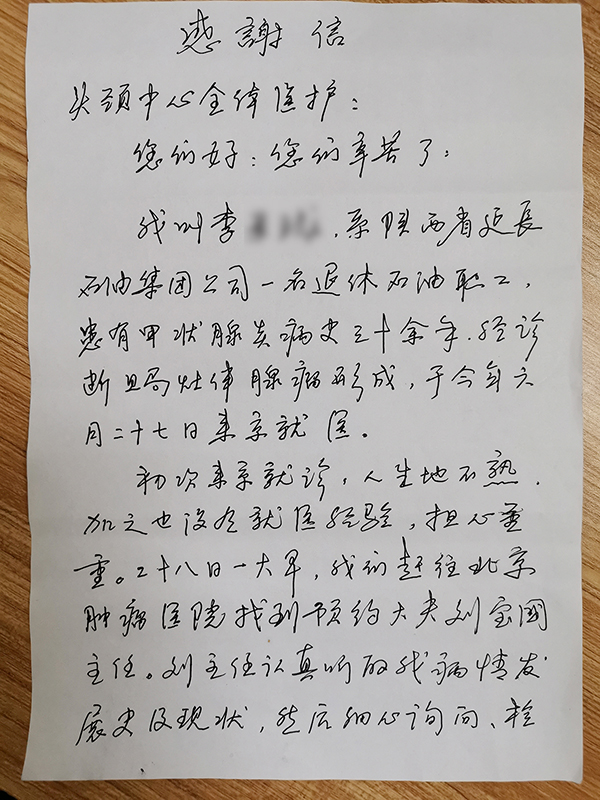 感謝信
头颈中心全体医护：
您们好：您们辛苦了：
我叫李，系陕西省延長
石油集团公司一名退休石油职工，
患有甲状腺炎病史三十余年.经诊
断且局灶体腺病形成，于今年六
月二十七日来京就医。
初次来京就诊，人生地不熟.
加之也没有就医经验，担心重
重。二十八日一大早，我们赶往北京
肿瘤医院找到预约大夫刘宝國
主任。刘主任认真听取我病情发
展史及现状，然后细心询问、检